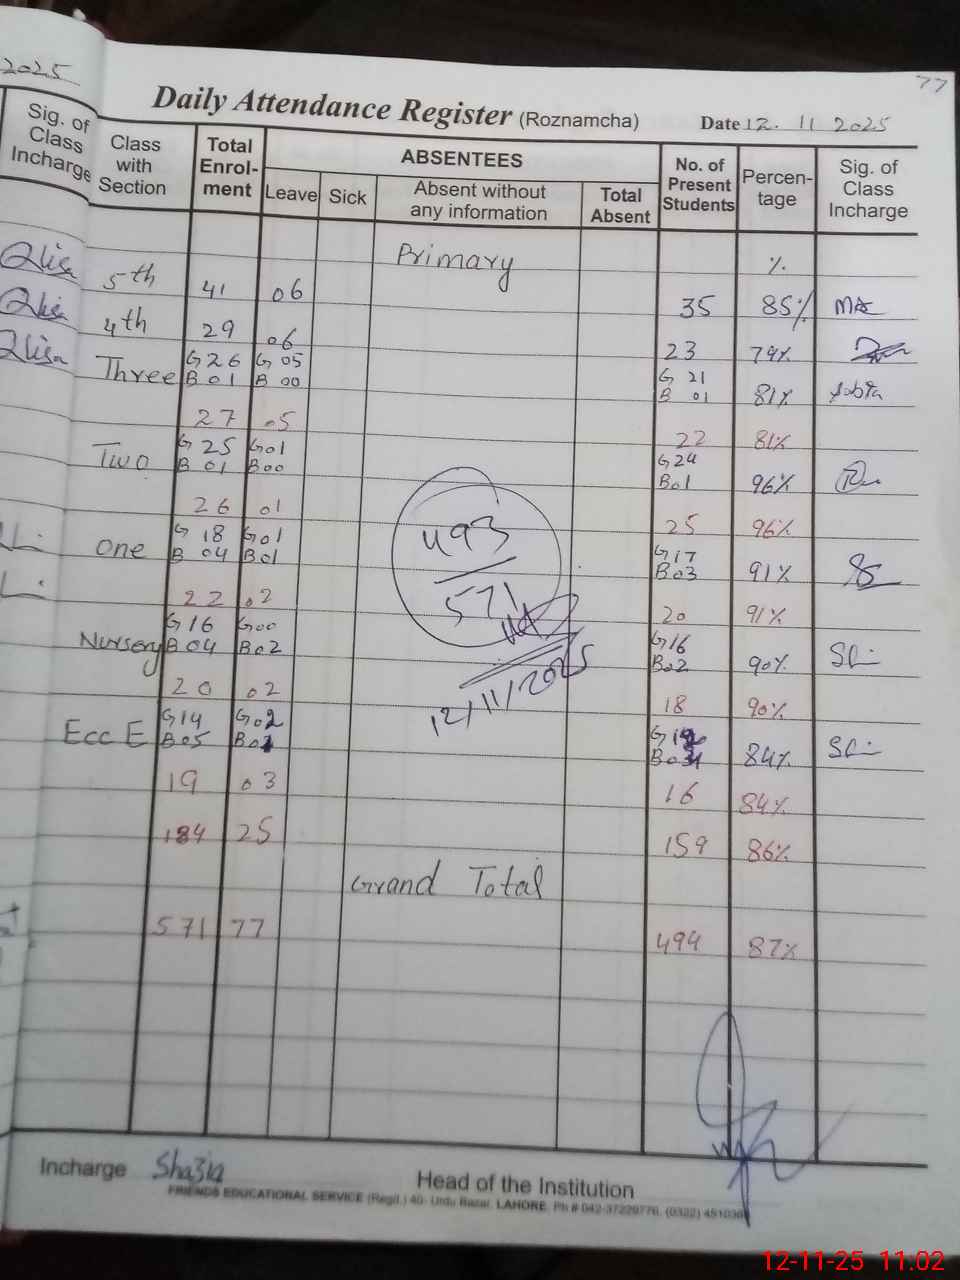 2025
77
Daily Attendance Register (Roznamcha)
Date 12. 11 2025
Sig. of Class Incharge
Class with Section
Total Enrol-ment
ABSENTEES
Leave
Sick
Absent without any information
Total Absent
No. of Present Students
Percen-tage
Sig. of Class Incharge
Primary
%
5th 41 06 35 85% MA
4th 29 06 23 79%
Three G 26 G 05 G 21
B 01 B 00 B 01 81%
27 05 22 81%
Two G 25 G01 G24
B 01 B00 B01 96%
26 01 25 96%
One G 18 G01 G17
B 04 B01 B03 91%
22 02 20 91%
Nursery G16 G00 G16
B04 B02 B02 90%
20 02 18 90%
Ecc E G14 G02
B05 84%
19 03 16 84%
184 25 159 86%
493
571
12/11/2025
Grand Total
571 77 494 87%
Incharge Shazia
Head of the Institution
FRIENDS EDUCATIONAL SERVICE (Regd.) 40- Urdu Bazar, LAHORE. Ph # 042-37229776, (0322)
12-11-25 11:02